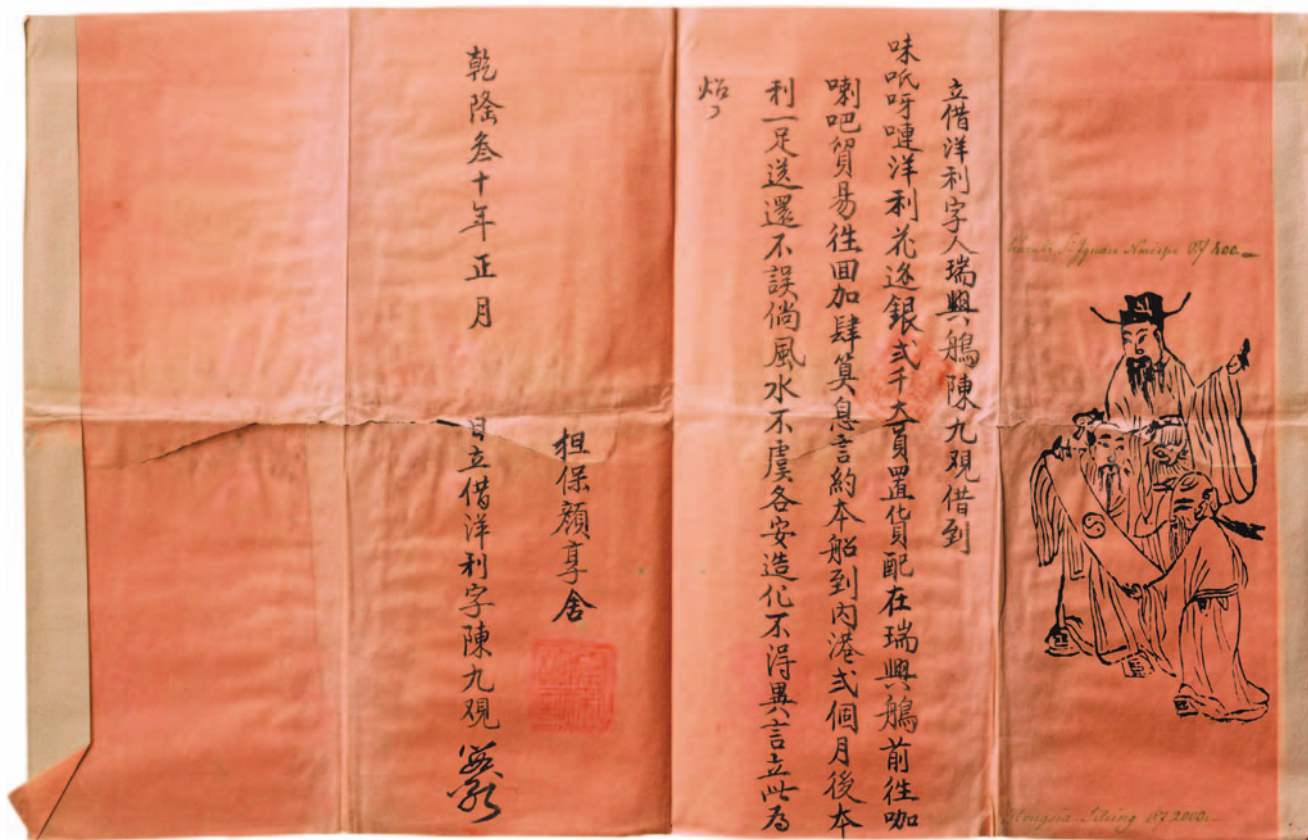 立借洋利字人瑞興鵃陳九观借到
味呧呀嗹洋利花邊銀弍千大員置貨配在瑞興鵃前往咖
喇吧貿易往回加肆算息言約本船到内港弍個月後本
利一足送還不誤倘風水不虞各安造化不得異言立此為
炤
担保顏享舍
乾隆叁十年正月 日立借洋利字陳九观